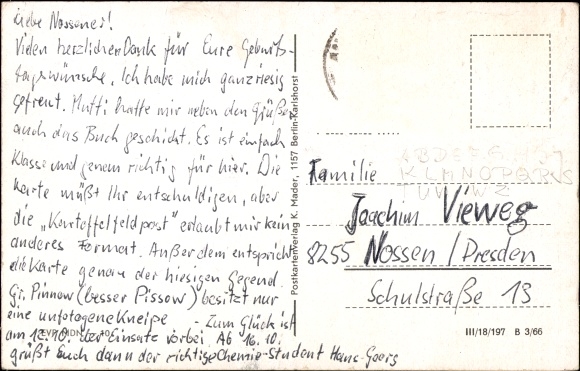 Liebe Nossener!
Vielen herzlichen Dank für Eure Geburts-
tagswünsche. Ich habe mich ganz riesig
gefreut. Mutti hatte mir neben den Grüßen
auch das Buch geschickt. Es ist einfach
Klasse und genau richtig für hier. Die
Karte müßt Ihr entschuldigen, aber
die „Kartoffelfeldpost" erlaubt mir kein
anderes Format. Außerdem entspricht
die Karte genau der hiesigen Gegend.
Gr. Pinnow (besser Pissow) besitzt nur
eine unfotogene Kneipe - Zum Glück ist
am 12.10. der Einsatz vorbei. Ab 16.10.
grüßt Euch dann der richtige Chemie-Student Hans-Georg
Postkartenverlag K. Mader, 1157 Berlin-Karlshorst
ABCDEFGHIJ
KLMNOPQRS
TUVWZ
Familie
Joachim Vieweg
8255 Nossen / Dresden
Schulstraße 13
III/18/197 B 3/66